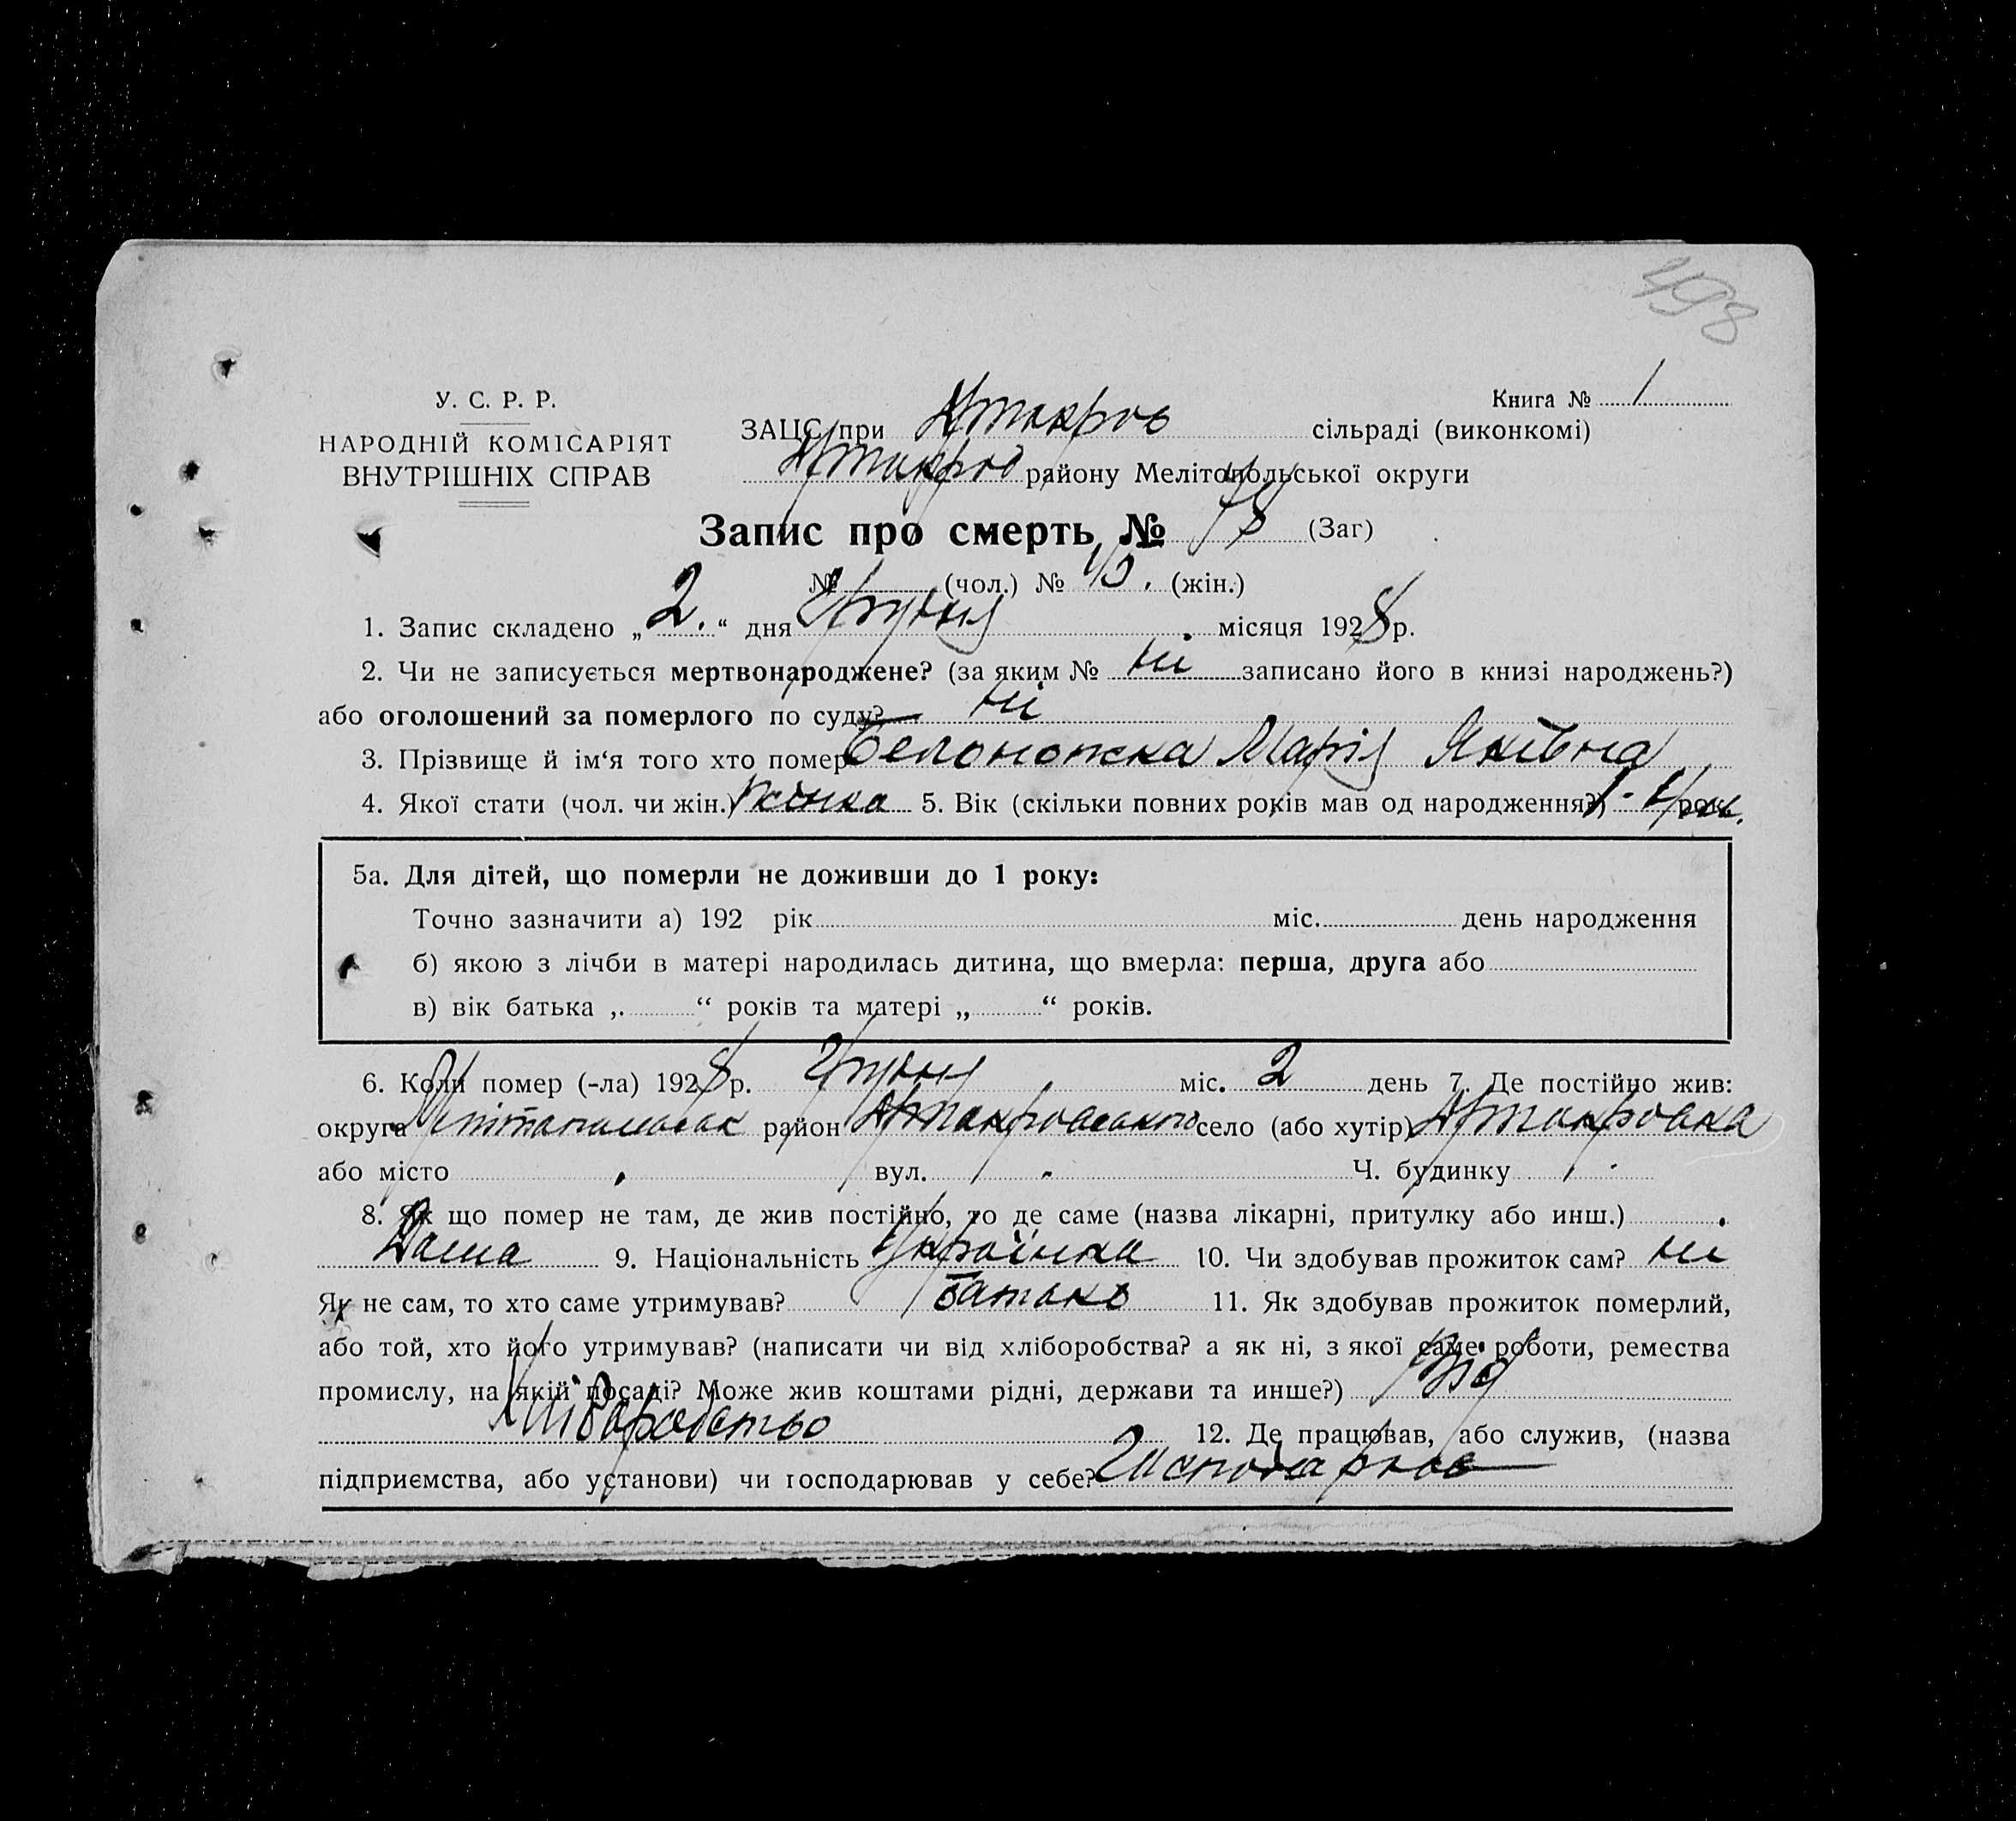 498
У. С. Р. Р.
НАРОДНІЙ КОМІСАРІЯТ
ВНУТРІШНІХ СПРАВ
Книга № 1
ЗАЦС при сільраді (виконкомі)
району Мелітопольської округи
Запис про смерть № 78 (Заг)
№ (чол.) № (жін.)
1. Запис складено „ 2. “ дня Грудня місяця 1928 р.
2. Чи не записується мертвонароджене? (за яким № ні записано його в книзі народжень?)
або оголошений за померлого по суду? ні
3. Прізвище й ім‘я того хто помер Белоножка Марія Яківна
4. Якої стати (чол. чи жін.) жінка 5. Вік (скільки повних років мав од народження?)
5а. Для дітей, що померли не доживши до 1 року:
Точно зазначити а) 192 рік міс. день народження
б) якою з лічби в матері народилась дитина, що вмерла: перша, друга або
в) вік батька „ “ років та матері „ “ років.
6. Коли помер (-ла) 1928 р. Грудня міс. 2 день 7. Де постійно жив:
округа район село (або хутір)
або місто вул. Ч. будинку
8. Як що помер не там, де жив постійно, то де саме (назва лікарні, притулку або инш.)
Дома 9. Національність Українка 10. Чи здобував прожиток сам? ні
Як не сам, то хто саме утримував? батько 11. Як здобував прожиток померлий,
або той, хто його утримував? (написати чи від хліборобства? а як ні, з якої саме роботи, ремества
промислу, на якій посаді? Може жив коштами рідні, держави та инше?) Від
Хліборобство 12. Де працював, або служив, (назва
підприємства, або установи) чи господарював у себе?